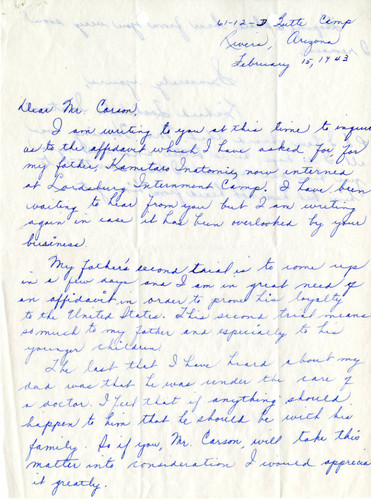 61-12-D Butte Camp
Rivers, Arizona
February 15, 1943
Dear Mr. Carson,
I am writing to you at this time to inquire
as to the affidavit which I have asked for for
my father, Kametaro Inatomi, now interned
at Lordsburg Internment Camp. I have been
waiting to hear from you but I am writing
again in case it has been overlooked by your
business.
My father's second trial is to come up
in a few days and I am in great need of
an affidavit in order to prove his loyalty
to the United States. This second trial means
so much to my father and especially to his
younger children.
The last that I have heard about my
dad was that he was under the care of
a doctor. I feel that if anything should
happen to him that he should be with his
family. So if you, Mr. Carson, will take this
matter into consideration I would apprecia
it greatly.